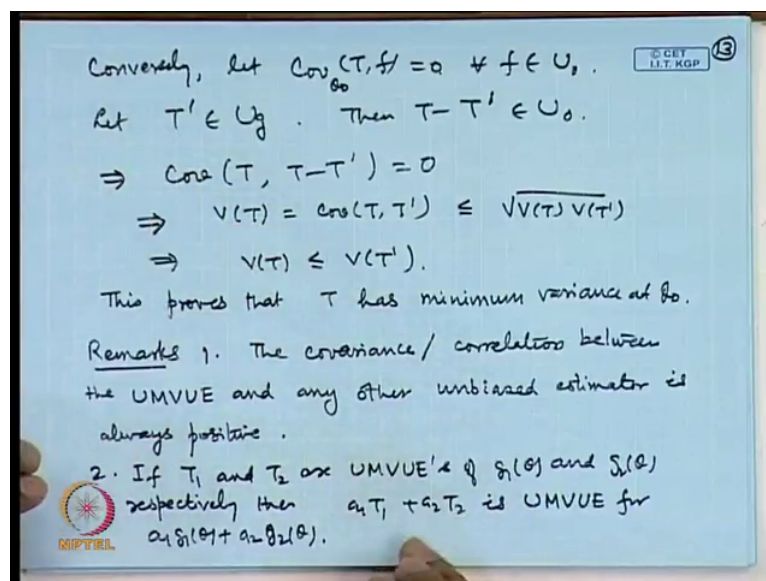 Conversely, let Cov_θ0 (T, f) = 0 ∀ f ∈ U0.
© CET
I.I.T. KGP
13
Let T' ∈ Ug. Then T - T' ∈ U0.
⇒ Cov (T, T - T') = 0
⇒ V(T) = Cov(T, T') ≤ √V(T) V(T')
⇒ V(T) ≤ V(T').
This proves that T has minimum variance at θ0.
Remarks 1. The covariance / correlation between
the UMVUE and any other unbiased estimator is
always positive.
2. If T1 and T2 are UMVUE's of g1(θ) and g2(θ)
respectively then a1T1 + a2T2 is UMVUE for
a1g1(θ) + a2g2(θ).
NPTEL